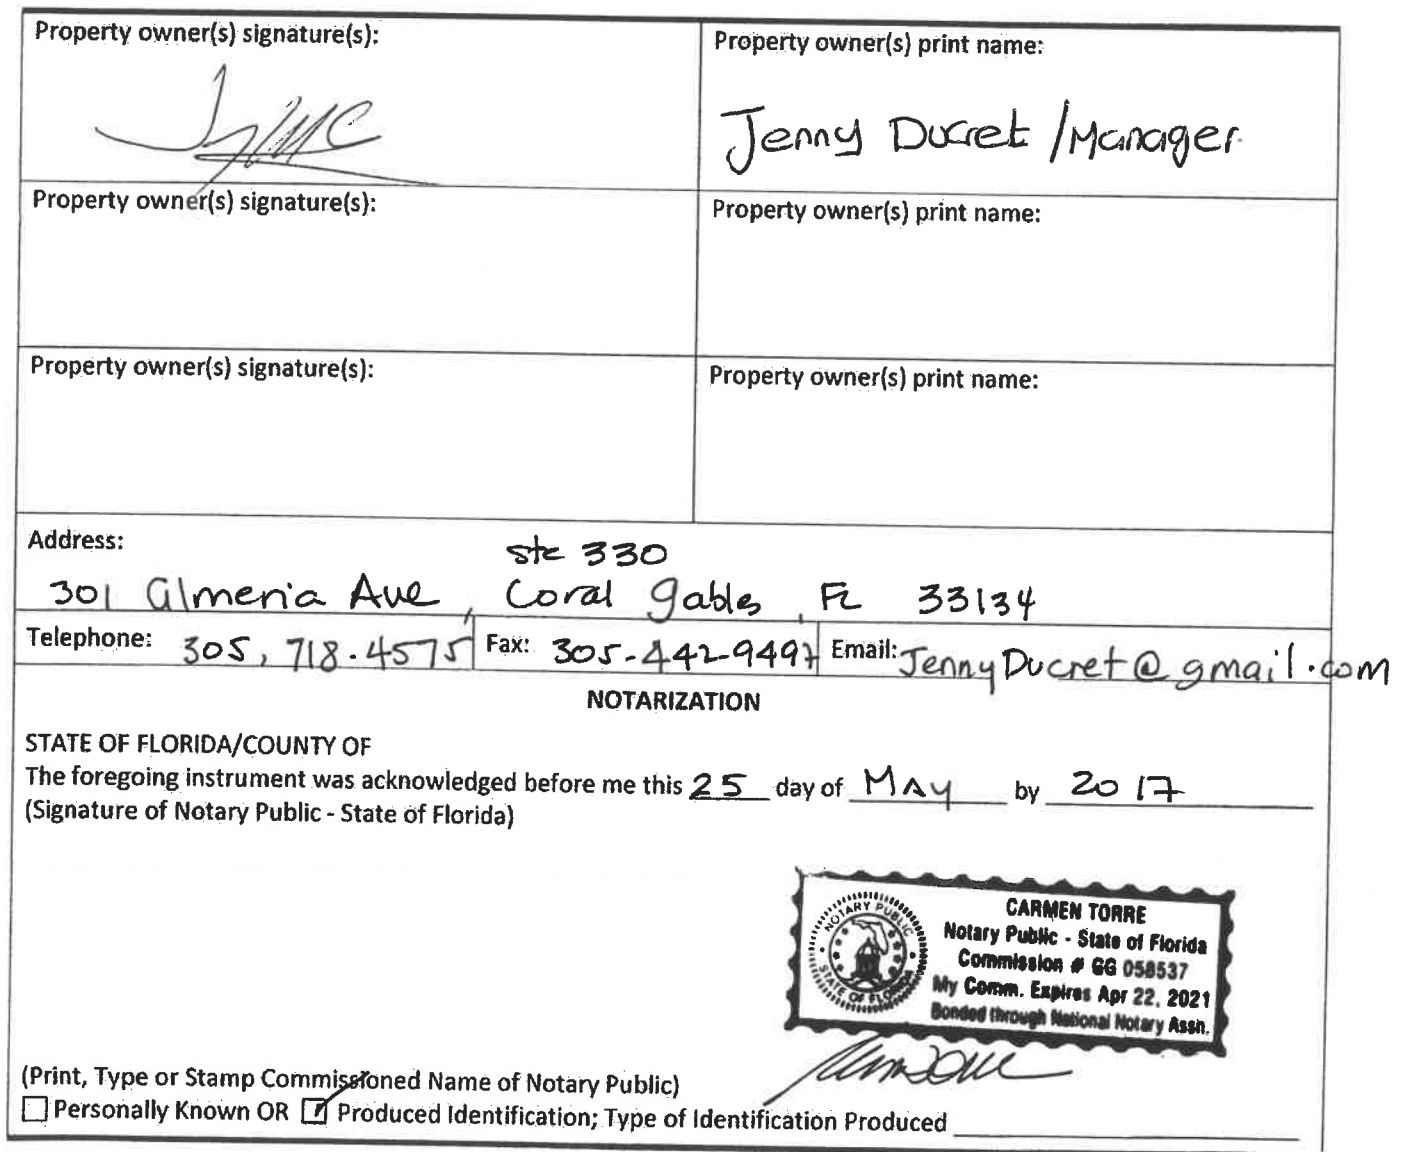 Property owner(s) signature(s):
Property owner(s) print name:
Jenny Ducret /Manager
Property owner(s) signature(s):
Property owner(s) print name:
Property owner(s) signature(s):
Property owner(s) print name:
Address:
Ste 330
301 Almeria Ave, Coral Gables, FL 33134
Telephone: 305, 718.4575 Fax: 305-442-9497 Email: JennyDucret@gmail.com
NOTARIZATION
STATE OF FLORIDA/COUNTY OF
The foregoing instrument was acknowledged before me this 25 day of May by 2017
(Signature of Notary Public - State of Florida)
NOTARY PUBLIC
STATE OF FLORIDA
CARMEN TORRE
Notary Public - State of Florida
Commission # GG 058537
My Comm. Expires Apr 22, 2021
Bonded through National Notary Assn.
(Print, Type or Stamp Commissioned Name of Notary Public)
Personally Known OR Produced Identification; Type of Identification Produced